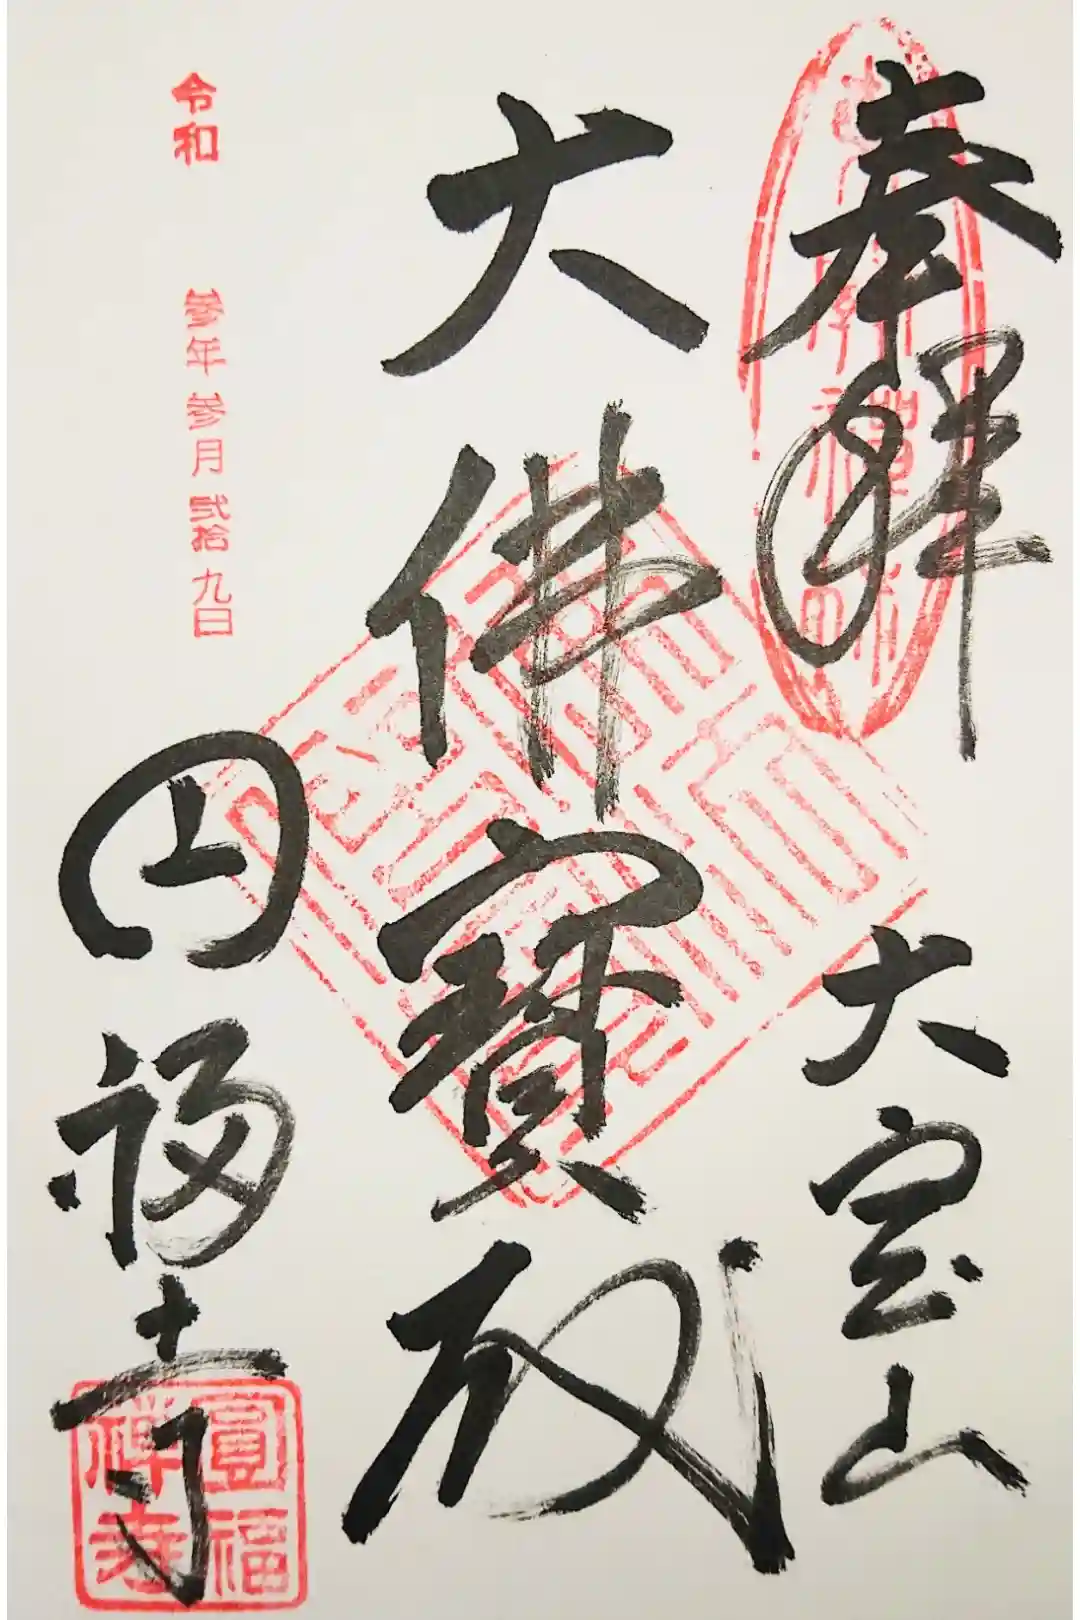 奉拜
大宝山
大佛寳殿
円福寺
令和
参年参月弐拾九日
圓福
禅寺